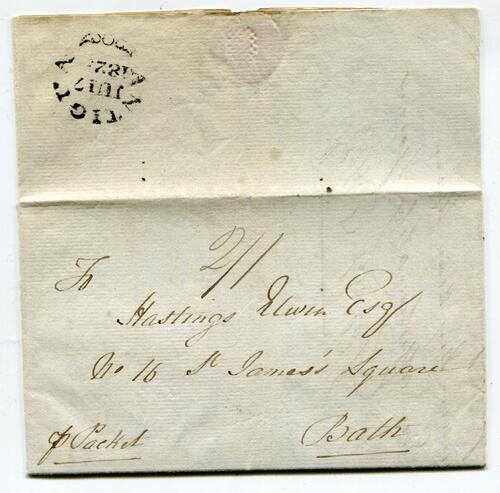 ANTIGUA
JUL 17
2/1
To
Hastings Elwin Esqr
No 16 St James's Square
Bath
p Packet